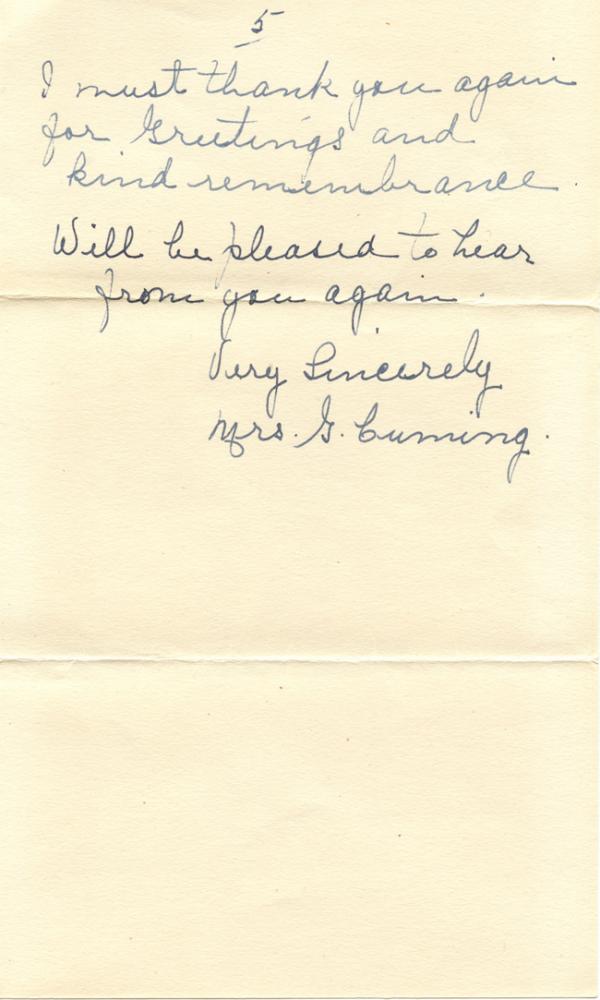 5
I must thank you again
for Greetings and
kind remembrance.
Will be pleased to hear
from you again.
Very Sincerely
Mrs. G. Cuming.